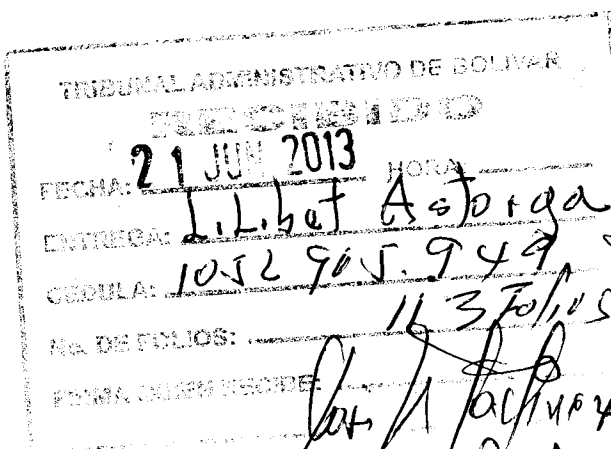 TRIBUNAL ADMINISTRATIVO DE BOLIVAR
RECIBIDO
FECHA: 21 JUN 2013 HORA:
ENTREGA: Lilibet Astorga
CEDULA: 1052 905.949
No. DE FOLIOS: 113 Folios
FIRMA QUIEN RECIBE: